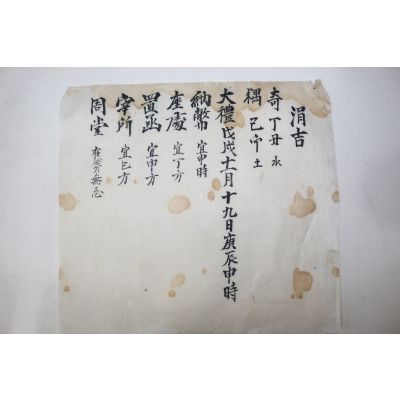 涓吉
奇 丁丑 水
耦 己卯 土
大禮戊戌十一月十九日庚辰申時
納幣 宜申時
座處 宜丁方
置函 宜申方
宰所 宜巳方
周堂 在